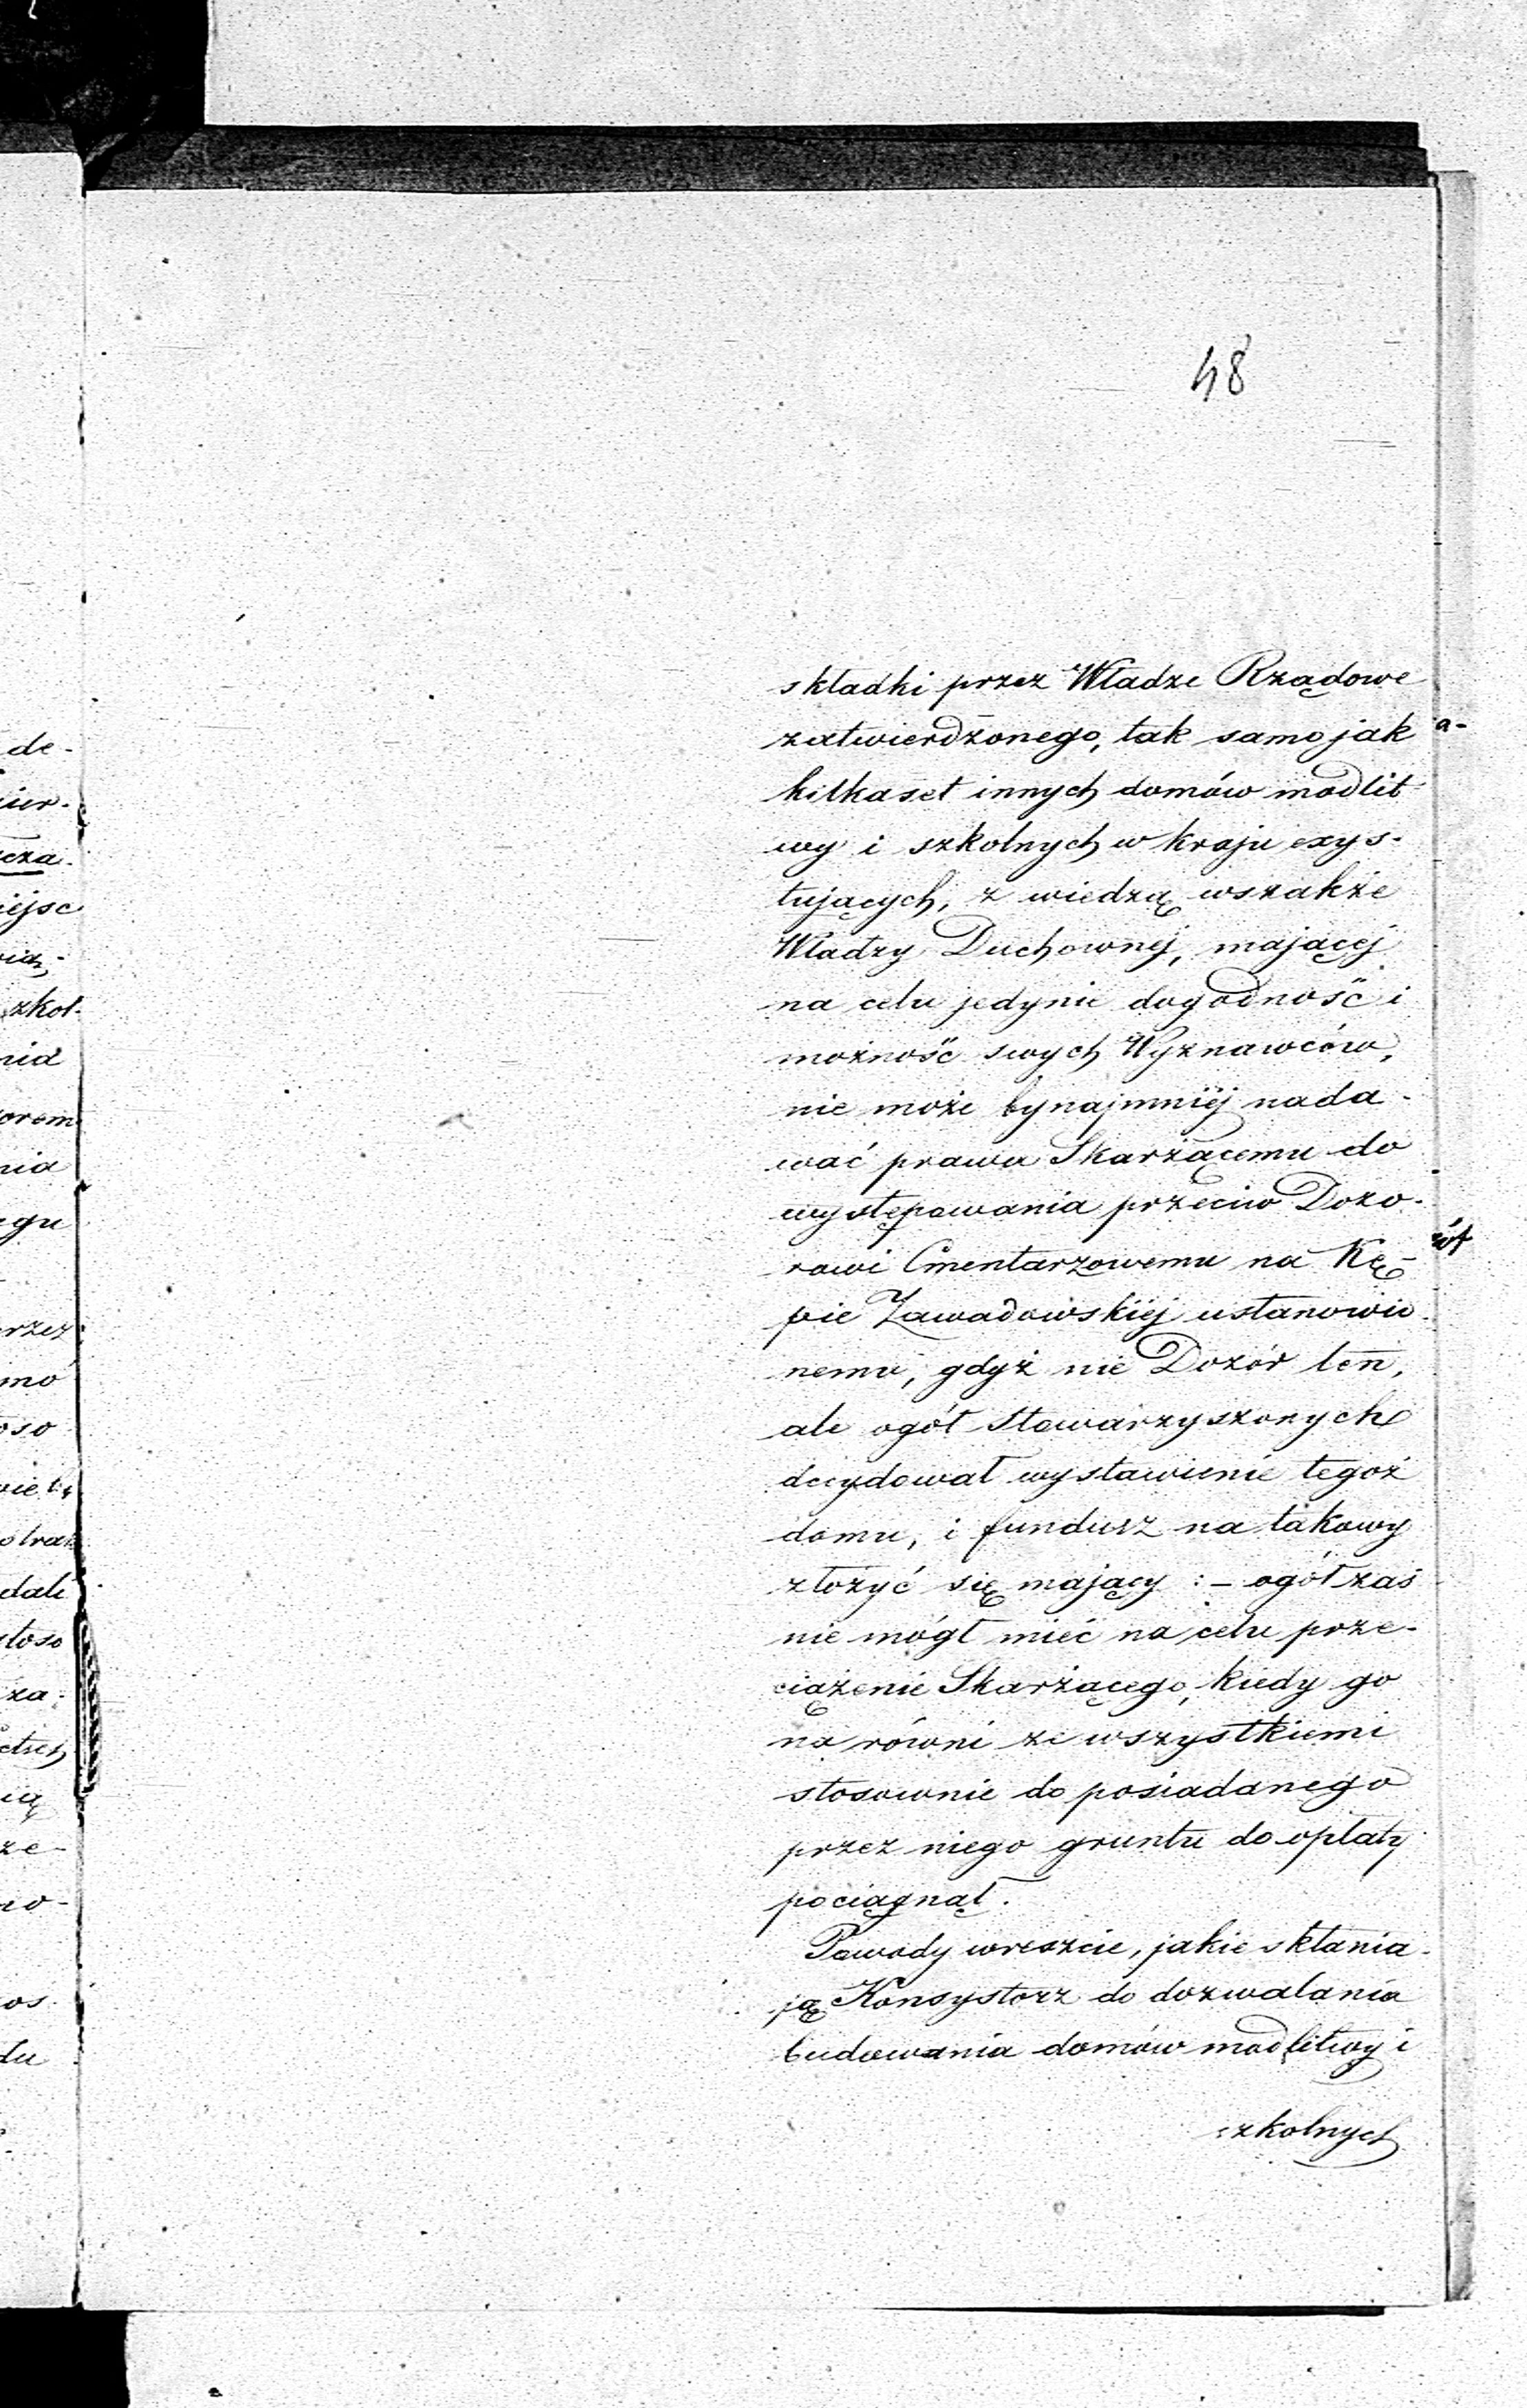 48
składki przez Władze Rządowe
zatwierdzonego, tak samo jak
kilkaset innych domów modlit
wy i szkolnych w kraju exys-
tujących, z wiedzą wszakże
Władzy Duchownej, mającej
na celu jedynie dogodność i
możność swych Wyznawców,
nie może bynajmniéj nada-
wać prawa Skarżącemu do
występowania przeciw Dozo-
rowi Cmentarzowemu na Kę-
pie Zawadowskiéj ustanowio-
nemu, gdyż nie Dozór ten,
ale ogół Stowarzyszonych
decydował wystawienie tegoż
domu, i fundusz na takowy
złożyć się mający :- ogół zaś
nie mógł mieć na celu prze-
ciążenie Skarżącego, kiedy go
na równi ze wszystkiemi
stosownie do posiadanego
przez niego gruntu do opłaty
pociągnął.
Powody wreszcie, jakie skłania-
ją Konsystorz do dozwalania
budowania domów modlitwy i
szkolnych